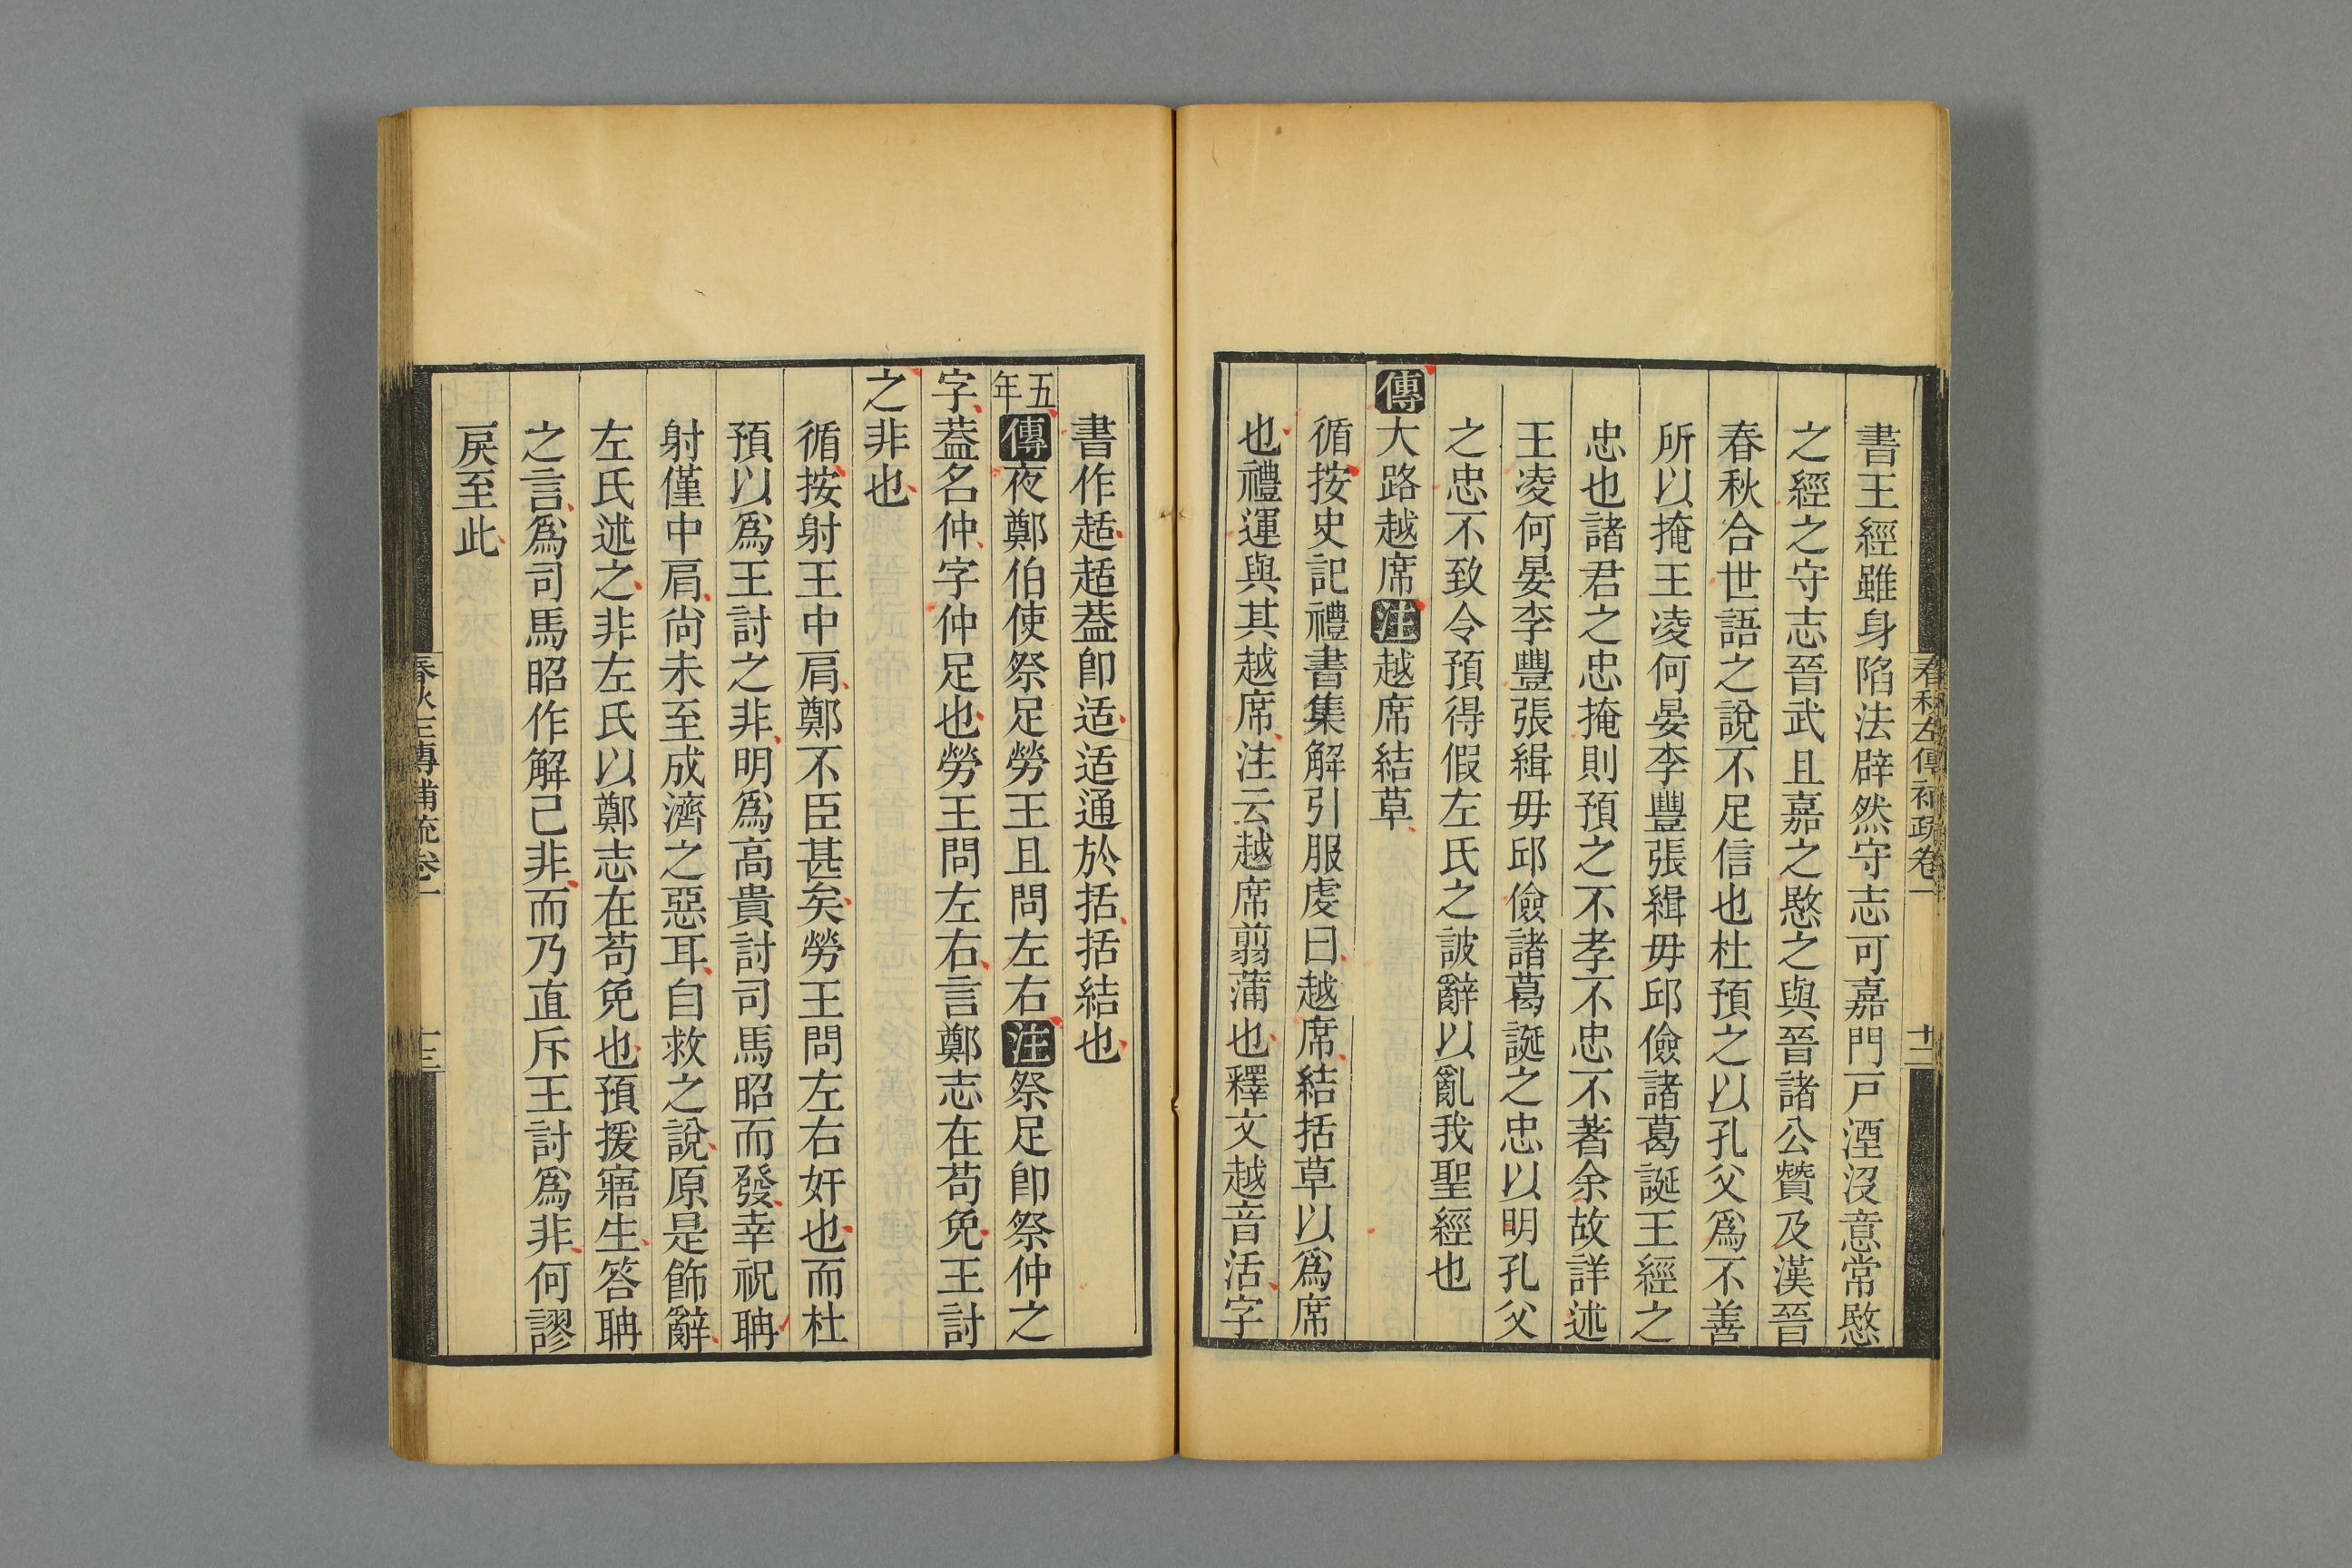 春秋左傳補疏卷一
十二
書王經雖身陷法辟然守志可嘉門戸湮沒意常愍
之經之守志晉武且嘉之愍之與晉諸公贊及漢晉
春秋合世語之說不足信也杜預之以孔父爲不善
所以掩王凌何晏李豐張緝毋邱儉諸葛誕王經之
忠也諸君之忠掩則預之不孝不忠不著余故詳述
王凌何晏李豐張緝毋邱儉諸葛誕之忠以明孔父
之忠不致令預得假左氏之詖辭以亂我聖經也
傳大路越席注越席結草
循按史記禮書集解引服虔曰越席結括草以爲席
也禮運與其越席注云越席翦蒲也釋文越音活字
書作趏趏葢卽适适通於括括結也
五年傳夜鄭伯使祭足勞王且問左右注祭足卽祭仲之
字葢名仲字仲足也勞王問左右言鄭志在苟免王討
之非也
循按射王中肩鄭不臣甚矣勞王問左右奸也而杜
預以爲王討之非明爲高貴討司馬昭而發幸祝聃
射僅中肩尙未至成濟之惡耳自救之說原是飾辭
左氏述之非左氏以鄭志在苟免也預援寤生答聃
之言爲司馬昭作解已非而乃直斥王討爲非何謬
戾至此
春秋左傳補疏卷一
十三